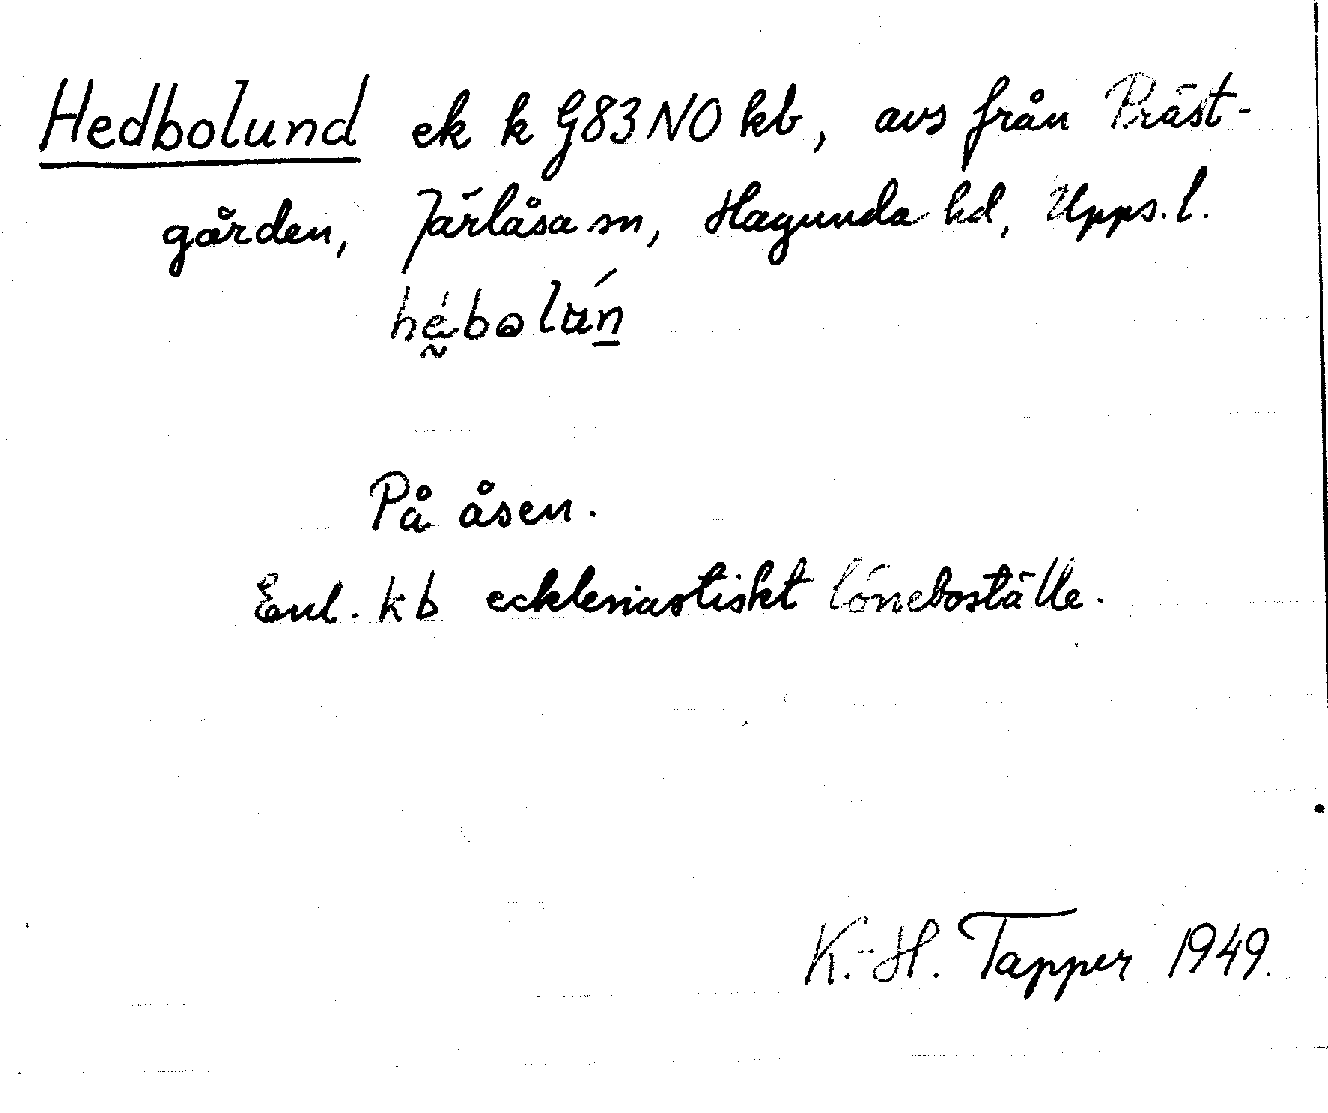 Hedbolund ek k G83NO kb, avs från Präst-
gården, Järlåsa sn, Hagunda hd, Upps.l.
På åsen.
Enl. kb ecklesiastiskt löneboställe.
K.-H. Tapper 1949.